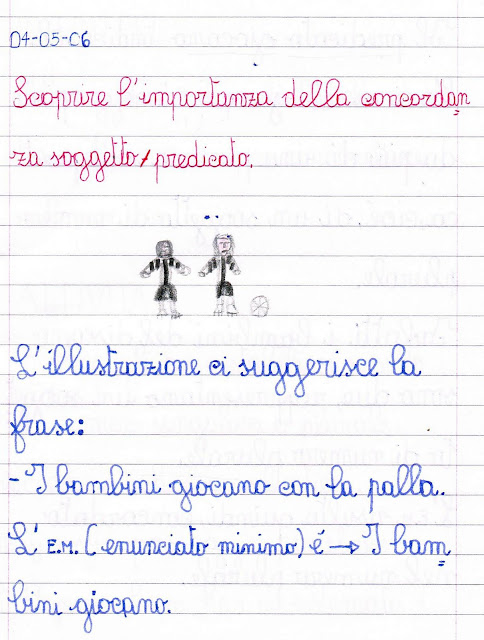 04-05-06
Scoprire l'importanza della concordan
za soggetto/predicato.
L'illustrazione ci suggerisce la
frase:
- I bambini giocano con la palla.
L'E.M. (enunciato minimo) é → I bam
bini giocano.